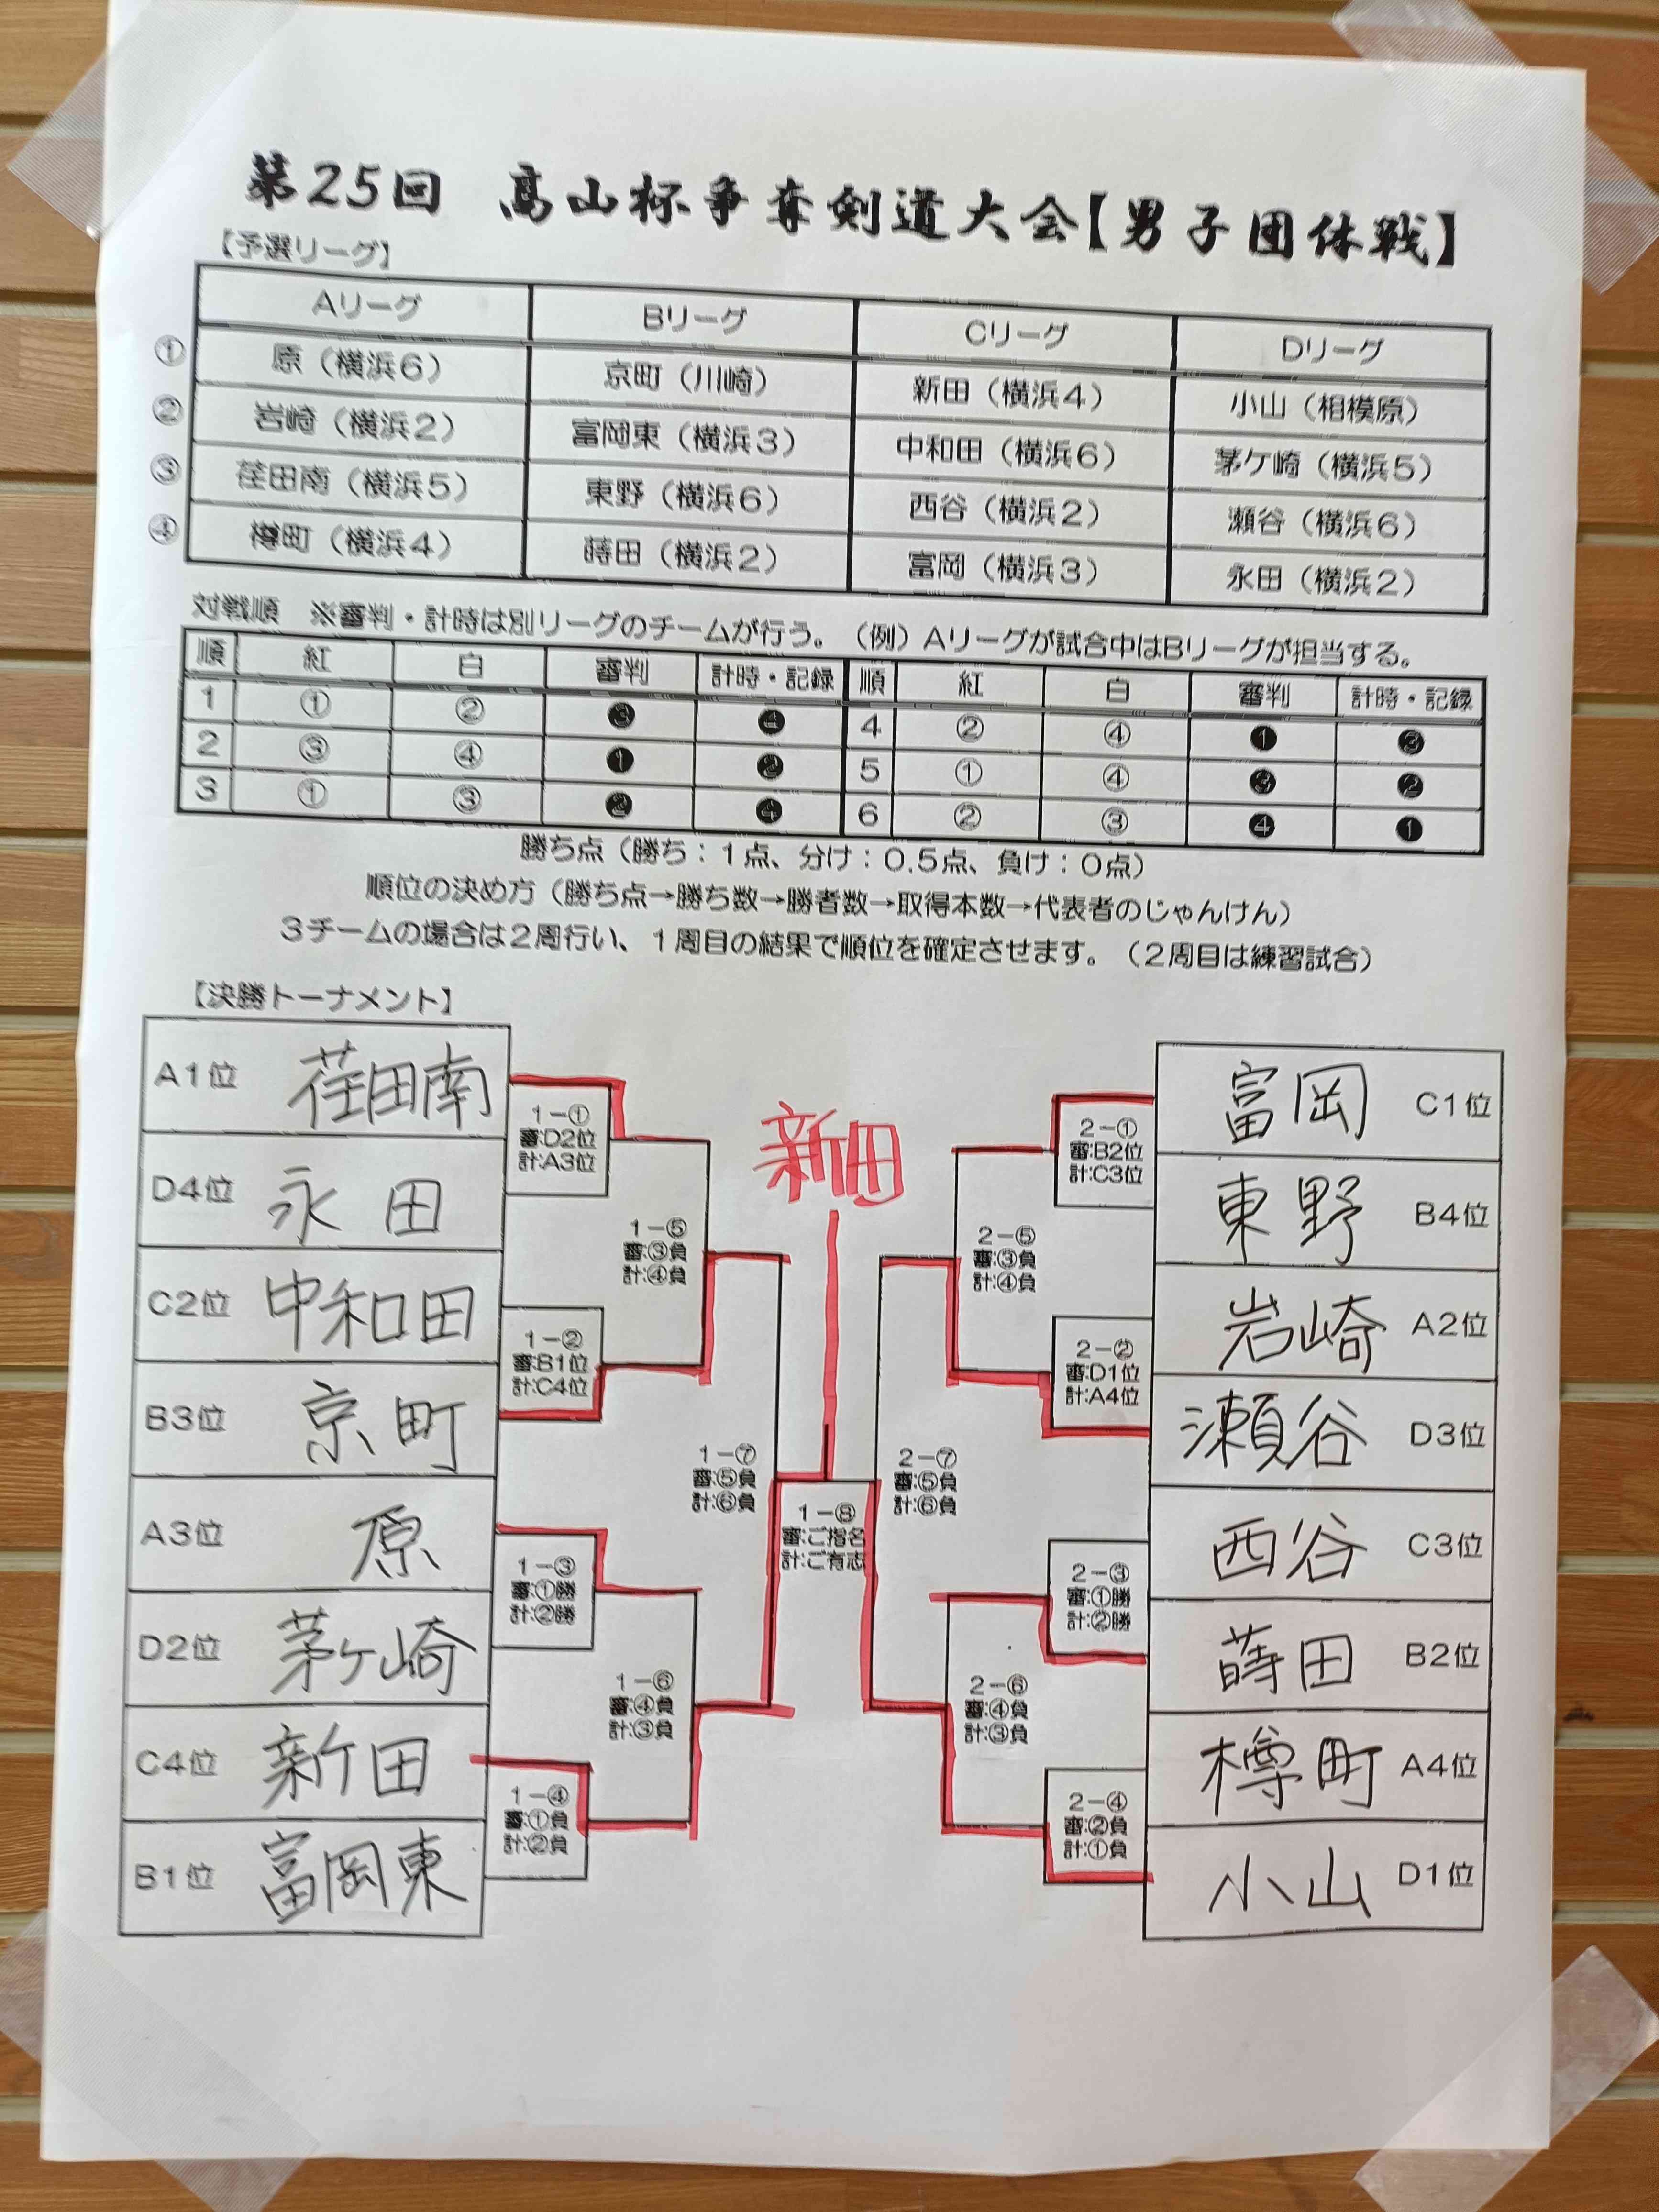 第25回 高山杯争奪剣道大会【男子団体戦】
【予選リーグ】
Aリーグ Bリーグ Cリーグ Dリーグ
① 原（横浜6） 京町（川崎） 新田（横浜4） 小山（相模原）
② 岩崎（横浜2） 富岡東（横浜3） 中和田（横浜6） 茅ケ崎（横浜5）
③ 荏田南（横浜5） 東野（横浜6） 西谷（横浜2） 瀬谷（横浜6）
④ 樽町（横浜4） 蒔田（横浜2） 富岡（横浜3） 永田（横浜2）
対戦順 ※審判・計時は別リーグのチームが行う。（例）Aリーグが試合中はBリーグが担当する。
順 紅 白 審判 計時・記録 順 紅 白 審判 計時・記録
1 ① ② ❸ ❹ 4 ② ④ ❶ ❸
2 ③ ④ ❶ ❷ 5 ① ④ ❸ ❷
3 ① ③ ❷ ❹ 6 ② ③ ❹ ❶
勝ち点（勝ち：1点、分け：0.5点、負け：0点）
順位の決め方（勝ち点→勝ち数→勝者数→取得本数→代表者のじゃんけん）
3チームの場合は2周行い、1周目の結果で順位を確定させます。（2周目は練習試合）
【決勝トーナメント】
A1位 荏田南
D4位 永田
C2位 中和田
B3位 京町
A3位 原
D2位 茅ヶ崎
C4位 新田
B1位 富岡東
1－①
審:D2位
計:A3位
1－②
審:B1位
計:C4位
1－③
審:①勝
計:②勝
1－④
審:①負
計:②負
1－⑤
審:③負
計:④負
1－⑥
審:④負
計:③負
1－⑦
審:⑤負
計:⑥負
新田
1－⑧
審:ご指名
計:ご有志
2－⑦
審:⑤負
計:⑥負
2－⑤
審:③負
計:④負
2－⑥
審:④負
計:③負
2－①
審:B2位
計:C3位
2－②
審:D1位
計:A4位
2－③
審:①勝
計:②勝
2－④
審:②負
計:①負
富岡 C1位
東野 B4位
岩崎 A2位
瀬谷 D3位
西谷 C3位
蒔田 B2位
樽町 A4位
小山 D1位